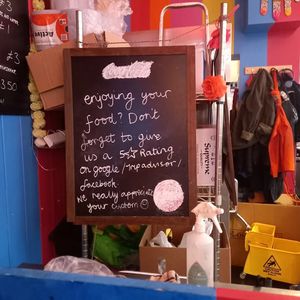 enjoying your
food? Don't
forget to give
us a 5☆ Rating
on google / tripadvisor /
facebook.
We really appreciate
your custom ☺
Active
Supreme
£3
350